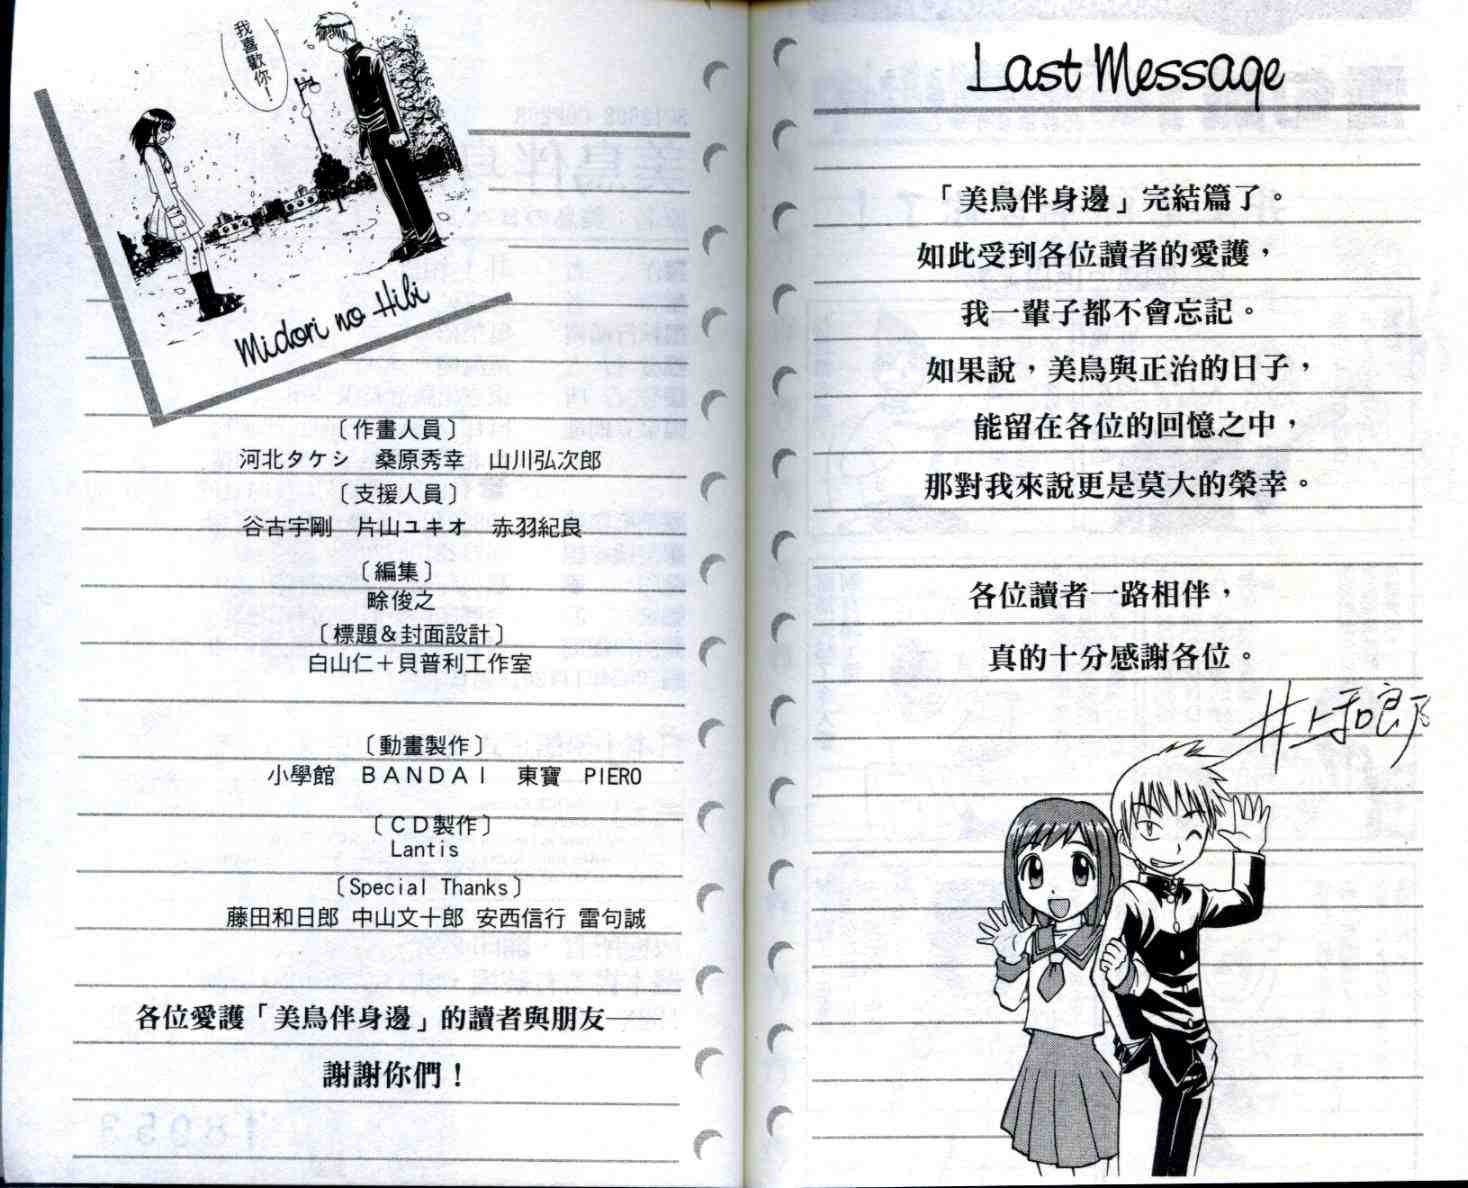 我喜歡你！
Midori no Hibi
〔作畫人員〕
河北タケシ　桑原秀幸　山川弘次郎
〔支援人員〕
谷古宇剛　片山ユキオ　赤羽紀良
〔編集〕
畭俊之
〔標題＆封面設計〕
白山仁＋貝普利工作室
〔動畫製作〕
小學館　ＢＡＮＤＡＩ　東寶　PIERO
〔ＣＤ製作〕
Lantis
〔Special Thanks〕
藤田和日郎 中山文十郎 安西信行 雷句誠
各位愛護「美鳥伴身邊」的讀者與朋友——
謝謝你們！
Last Message
「美鳥伴身邊」完結篇了。
如此受到各位讀者的愛護，
我一輩子都不會忘記。
如果說，美鳥與正治的日子，
能留在各位的回憶之中，
那對我來說更是莫大的榮幸。
各位讀者一路相伴，
真的十分感謝各位。
井上和郎